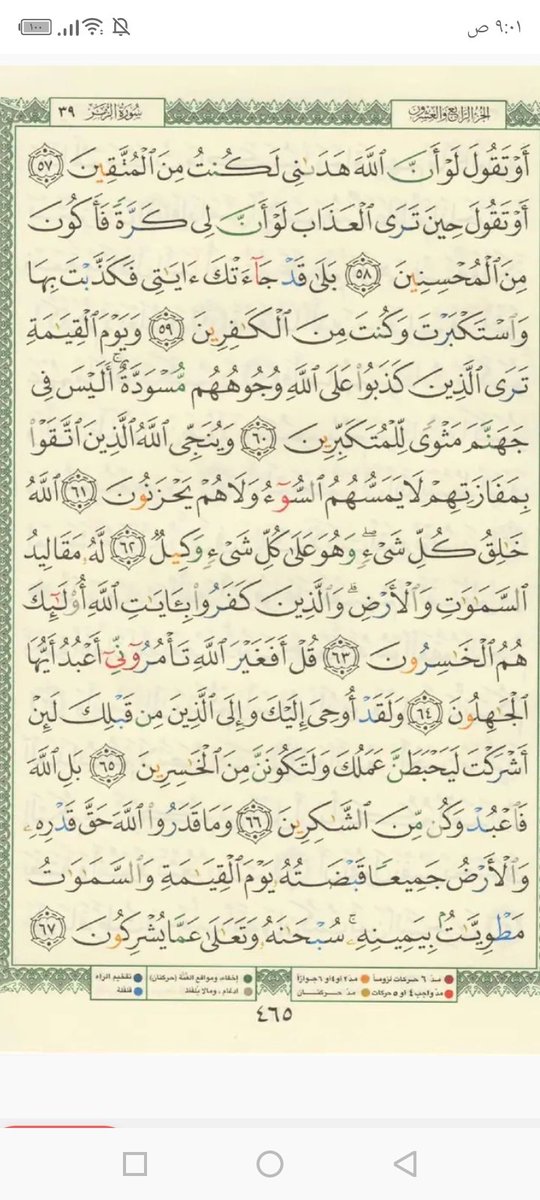 ٩:٠١ ص
١٠٠
الجزء الرابع والعشرون
سورة الزمر ٣٩
أَوْ تَقُولَ لَوْ أَنَّ ٱللَّهَ هَدَىٰنِى لَكُنتُ مِنَ ٱلْمُتَّقِينَ ٥٧
أَوْ تَقُولَ حِينَ تَرَى ٱلْعَذَابَ لَوْ أَنَّ لِى كَرَّةً فَأَكُونَ
مِنَ ٱلْمُحْسِنِينَ ٥٨ بَلَىٰ قَدْ جَآءَتْكَ ءَايَٰتِى فَكَذَّبْتَ بِهَا
وَٱسْتَكْبَرْتَ وَكُنتَ مِنَ ٱلْكَٰفِرِينَ ٥٩ وَيَوْمَ ٱلْقِيَٰمَةِ
تَرَى ٱلَّذِينَ كَذَبُوا۟ عَلَى ٱللَّهِ وُجُوهُهُم مُّسْوَدَّةٌ ۚ أَلَيْسَ فِى
جَهَنَّمَ مَثْوًى لِّلْمُتَكَبِّرِينَ ٦٠ وَيُنَجِّى ٱللَّهُ ٱلَّذِينَ ٱتَّقَوْا۟
بِمَفَازَتِهِمْ لَا يَمَسُّهُمُ ٱلسُّوٓءُ وَلَا هُمْ يَحْزَنُونَ ٦١ ٱللَّهُ
خَٰلِقُ كُلِّ شَىْءٍ ۖ وَهُوَ عَلَىٰ كُلِّ شَىْءٍ وَكِيلٌ ٦٢ لَّهُۥ مَقَالِيدُ
ٱلسَّمَٰوَٰتِ وَٱلْأَرْضِ ۗ وَٱلَّذِينَ كَفَرُوا۟ بِـَٔايَٰتِ ٱللَّهِ أُو۟لَٰٓئِكَ
هُمُ ٱلْخَٰسِرُونَ ٦٣ قُلْ أَفَغَيْرَ ٱللَّهِ تَأْمُرُوٓنِّىٓ أَعْبُدُ أَيُّهَا
ٱلْجَٰهِلُونَ ٦٤ وَلَقَدْ أُوحِىَ إِلَيْكَ وَإِلَى ٱلَّذِينَ مِن قَبْلِكَ لَئِنْ
أَشْرَكْتَ لَيَحْبَطَنَّ عَمَلُكَ وَلَتَكُونَنَّ مِنَ ٱلْخَٰسِرِينَ ٦٥ بَلِ ٱللَّهَ
فَٱعْبُدْ وَكُن مِّنَ ٱلشَّٰكِرِينَ ٦٦ وَمَا قَدَرُوا۟ ٱللَّهَ حَقَّ قَدْرِهِۦ
وَٱلْأَرْضُ جَمِيعًا قَبْضَتُهُۥ يَوْمَ ٱلْقِيَٰمَةِ وَٱلسَّمَٰوَٰتُ
مَطْوِيَّٰتٌۢ بِيَمِينِهِۦ ۚ سُبْحَٰنَهُۥ وَتَعَٰلَىٰ عَمَّا يُشْرِكُونَ ٦٧
مدّ ٦ حركات لزوماً مدّ ٢ او ٤ او ٦ جوازاً إخفاء، ومواقع الغُنَّة (حركتان) تفخيم الراء
مدّ واجب ٤ او ٥ حركات مدّ حركتان ادغام، ومالا يُلفَظ قلقلة
٤٦٥